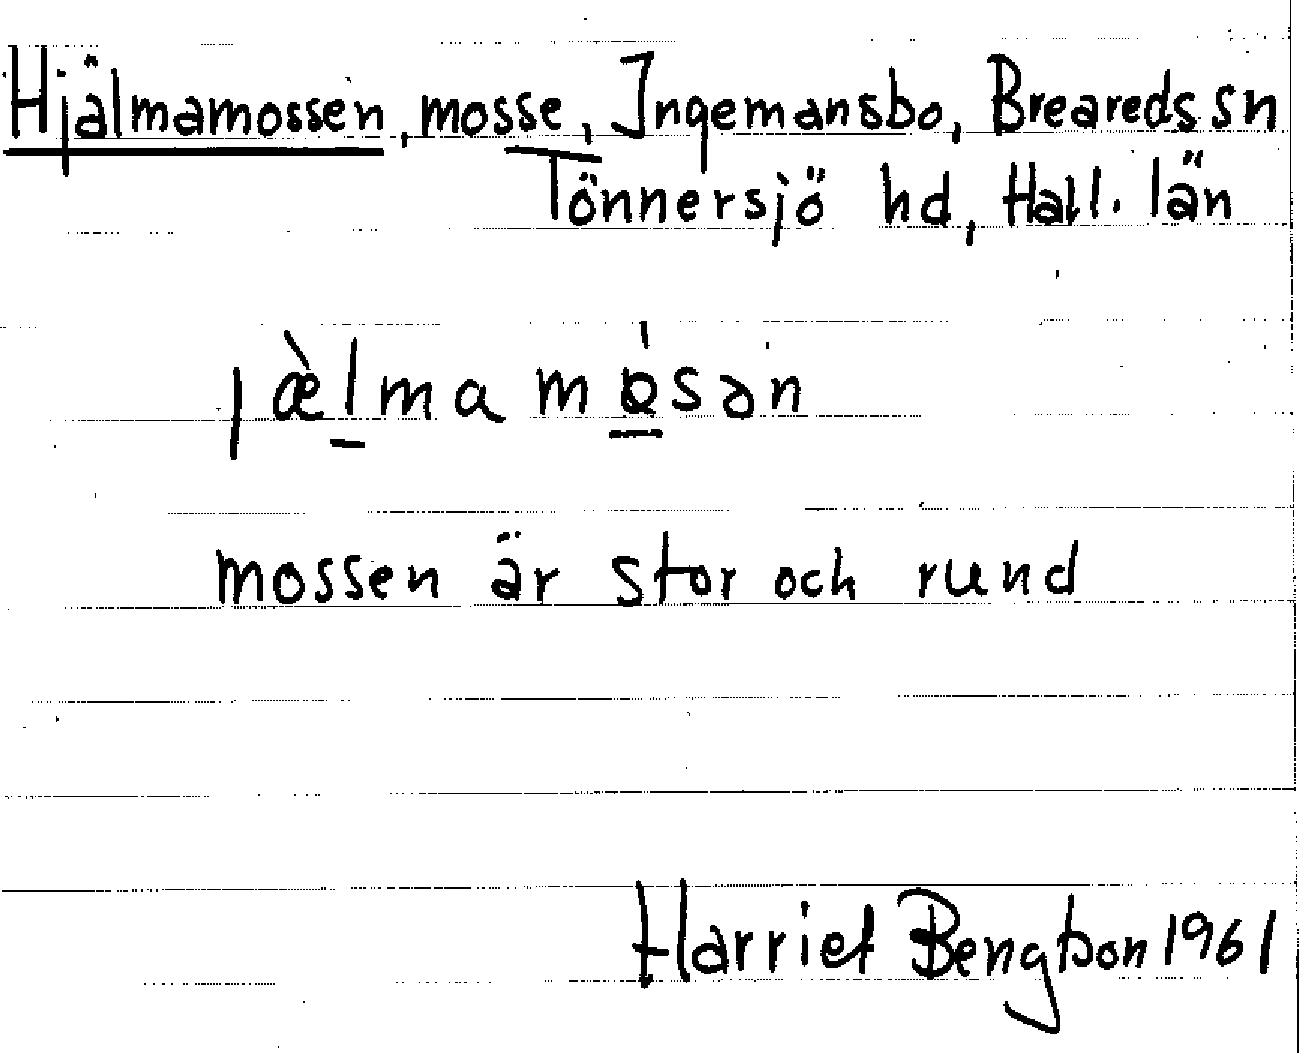 Hjälmamossen, mosse, Ingemansbo, Breareds sn
Tönnersjö hd, Hall. län
jæ̀l̠mamò̠sən
mossen är stor och rund
Harriet Bengtson 1961